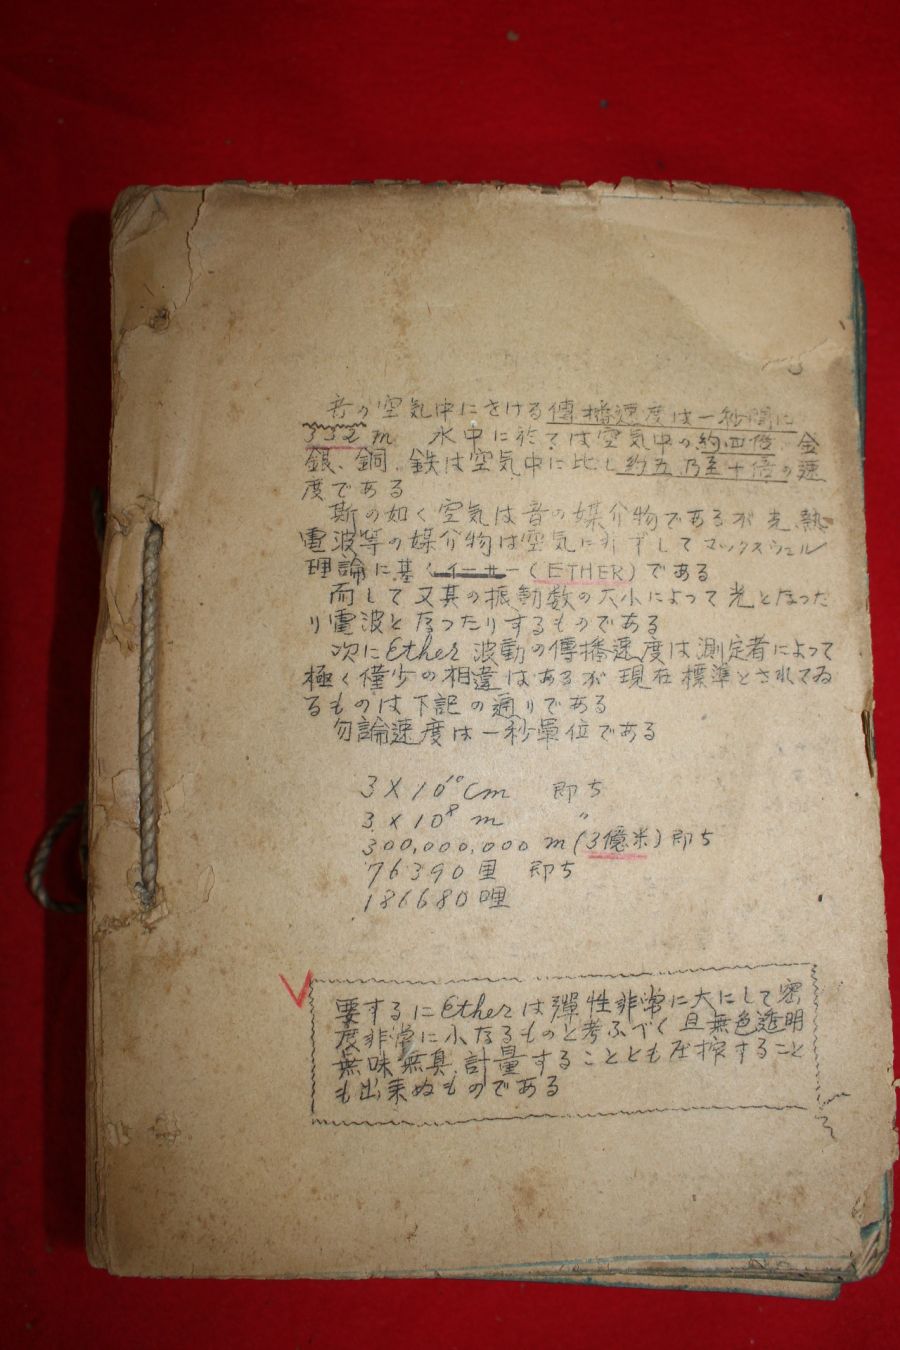 音の空気中に於ける傳播速度は一秒間に
332m 水中に於ては空気中の約四倍、金
銀、銅、鉄は空気中に比し約五乃至十倍の速
度である
斯の如く空気は音の媒介物であるが光、熱
電波等の媒介物は空気に非ずしてマックスウェル
理論に基くイーサー(ETHER)である
而して又其の振動数の大小によって光となった
り電波となったりするものである
次にEther波動の傳播速度は測定者によって
極く僅少の相違はあるが現在標準とされてゐ
るものは下記の通りである
勿論速度は一秒單位である
3×10¹⁰cm 即ち
3×10⁸m 〃
300,000,000m(3億米)即ち
76390里 即ち
186680哩
要するにEtherは彈性非常に大にして密
度非常に小なるものと考ふべく且無色透明
無味無臭、計量することとも圧搾すること
も出来ぬものである